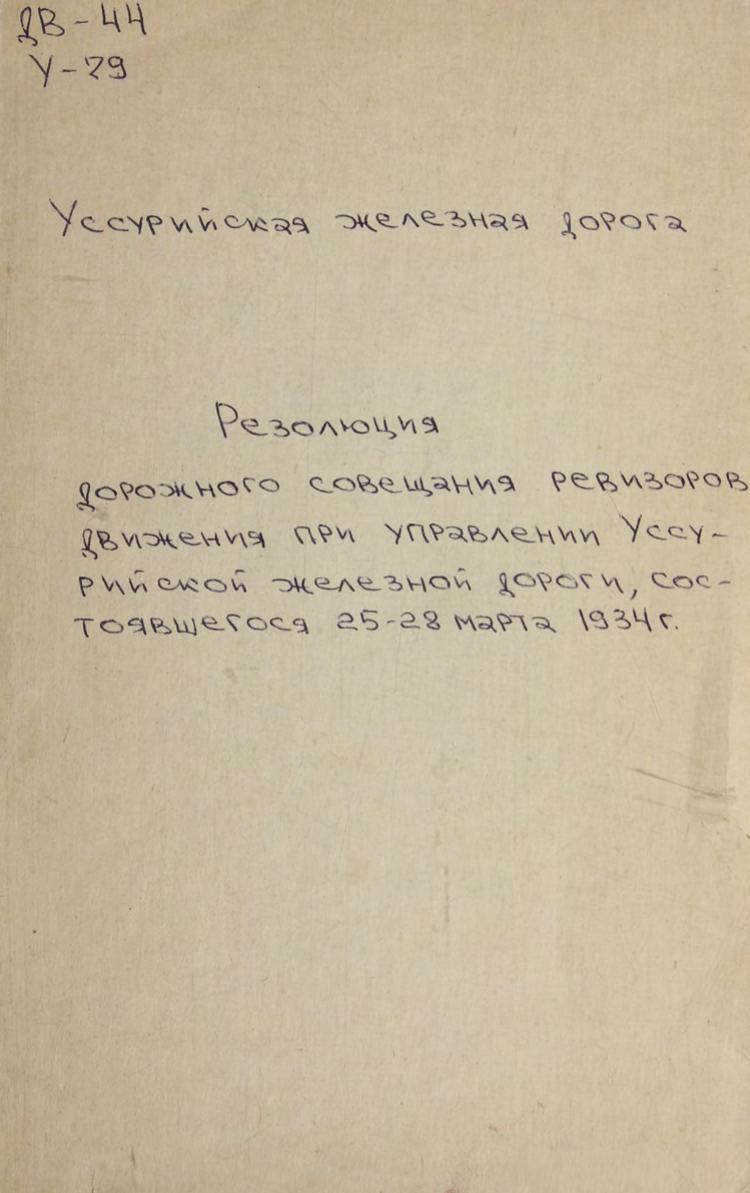 ДВ-44
У-79
Уссурийская железная дорога
Резолюция
дорожного совещания ревизоров
движения при управлении Уссу-
рийской железной дороги, сос-
тоявшегося 25-28 марта 1934 г.